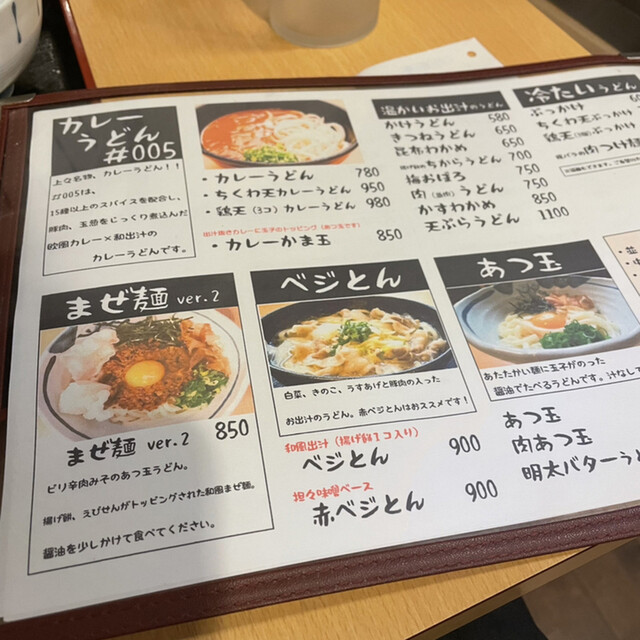 カレー
うどん
#005
上々名物、カレーうどん！！
#005は、
15種以上のスパイスを配合し、
豚肉、玉葱をじっくり煮込んだ
欧風カレー×和出汁の
カレーうどんです。
・カレーうどん 780
・ちくわ天カレーうどん 950
・鶏天（3コ）カレーうどん 980
出汁抜きカレーに玉子のトッピング（あつ玉です）
・カレーかま玉 850
温かいお出汁のうどん
かけうどん 580
きつねうどん 650
昆布わかめ 650
ちからうどん 700
梅おぼろ 750
肉（豚肉）うどん 750
かすわかめ 850
天ぷらうどん 1100
冷たいうどん
ぶっかけ
ちくわ天ぶっかけ
鶏天（3個）ぶっかけ
豚バラの肉つけ麺
まぜ麺 ver.2
まぜ麺 ver.2 850
ピリ辛肉みそのあつ玉うどん。
揚げ餅、えびせんがトッピングされた和風まぜ麺。
醤油を少しかけて食べてください。
ベジとん
白菜、きのこ、うすあげと豚肉の入った
お出汁のうどん。赤ベジとんはおススメです！
和風出汁（揚げ餅1コ入り）
ベジとん 900
担々味噌ベース
赤ベジとん 900
あつ玉
あたたかい麺に玉子がのった
醤油でたべるうどんです。汁なし
あつ玉
肉あつ玉
明太バターうど